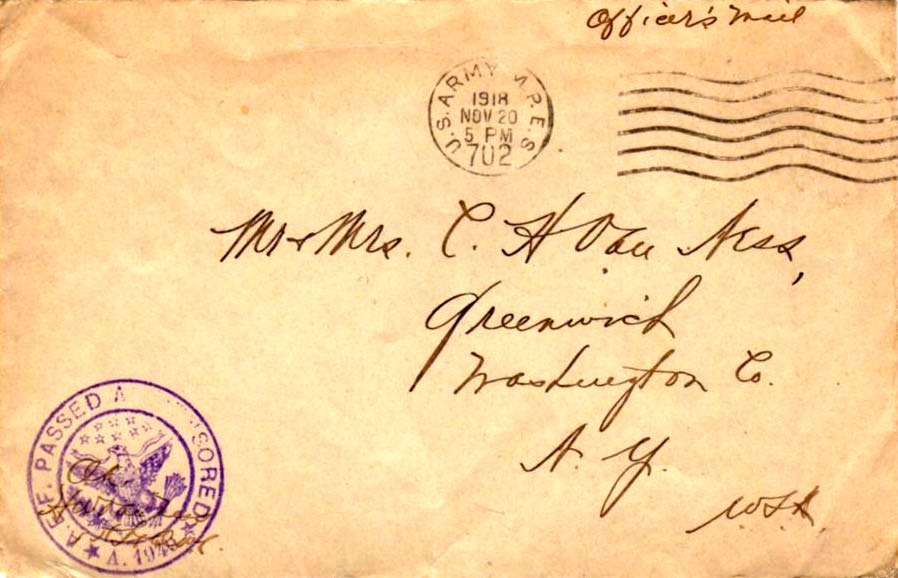 Officer's Mail
U.S. ARMY M.P.E.S.
1918
NOV 20
5 PM
702
Mr & Mrs. C. H Van Ness,
Greenwich
Washington Co.
N. Y.
USA
A.E.F. PASSED A SORED
OK
A.